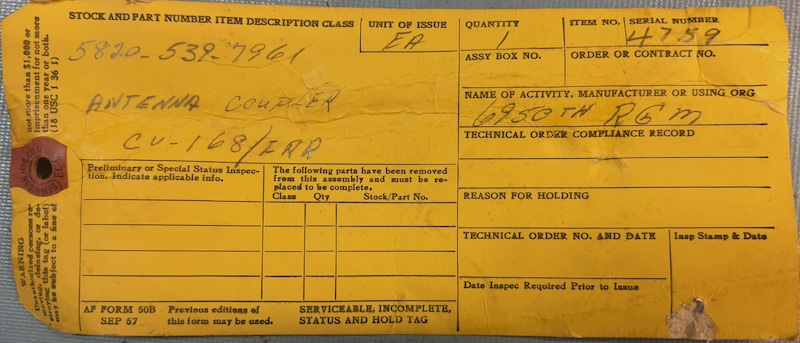 STOCK AND PART NUMBER ITEM DESCRIPTION CLASS
5820-539-7961
ANTENNA COUPLER
CU-168/FRR
UNIT OF ISSUE
EA
QUANTITY
1
ITEM NO.
SERIAL NUMBER
4759
ASSY BOX NO.
ORDER OR CONTRACT NO.
NAME OF ACTIVITY, MANUFACTURER OR USING ORG
6950TH RGM
TECHNICAL ORDER COMPLIANCE RECORD
REASON FOR HOLDING
TECHNICAL ORDER NO. AND DATE
Insp Stamp & Date
Date Inspec Required Prior to Issue
Preliminary or Special Status Inspec-
tion. Indicate applicable info.
The following parts have been removed
from this assembly and must be re-
placed to be complete.
Class Qty Stock/Part No.
AF FORM 50B
SEP 57
Previous editions of
this form may be used.
SERVICEABLE, INCOMPLETE,
STATUS AND HOLD TAG
WARNING
Unauthorized persons re-
moving, defacing, or de-
stroying this tag (or label)
may be subject to a fine of
not more than $1,000 or
imprisonment for not more
than one year or both.
(18 USC 1 36 1)